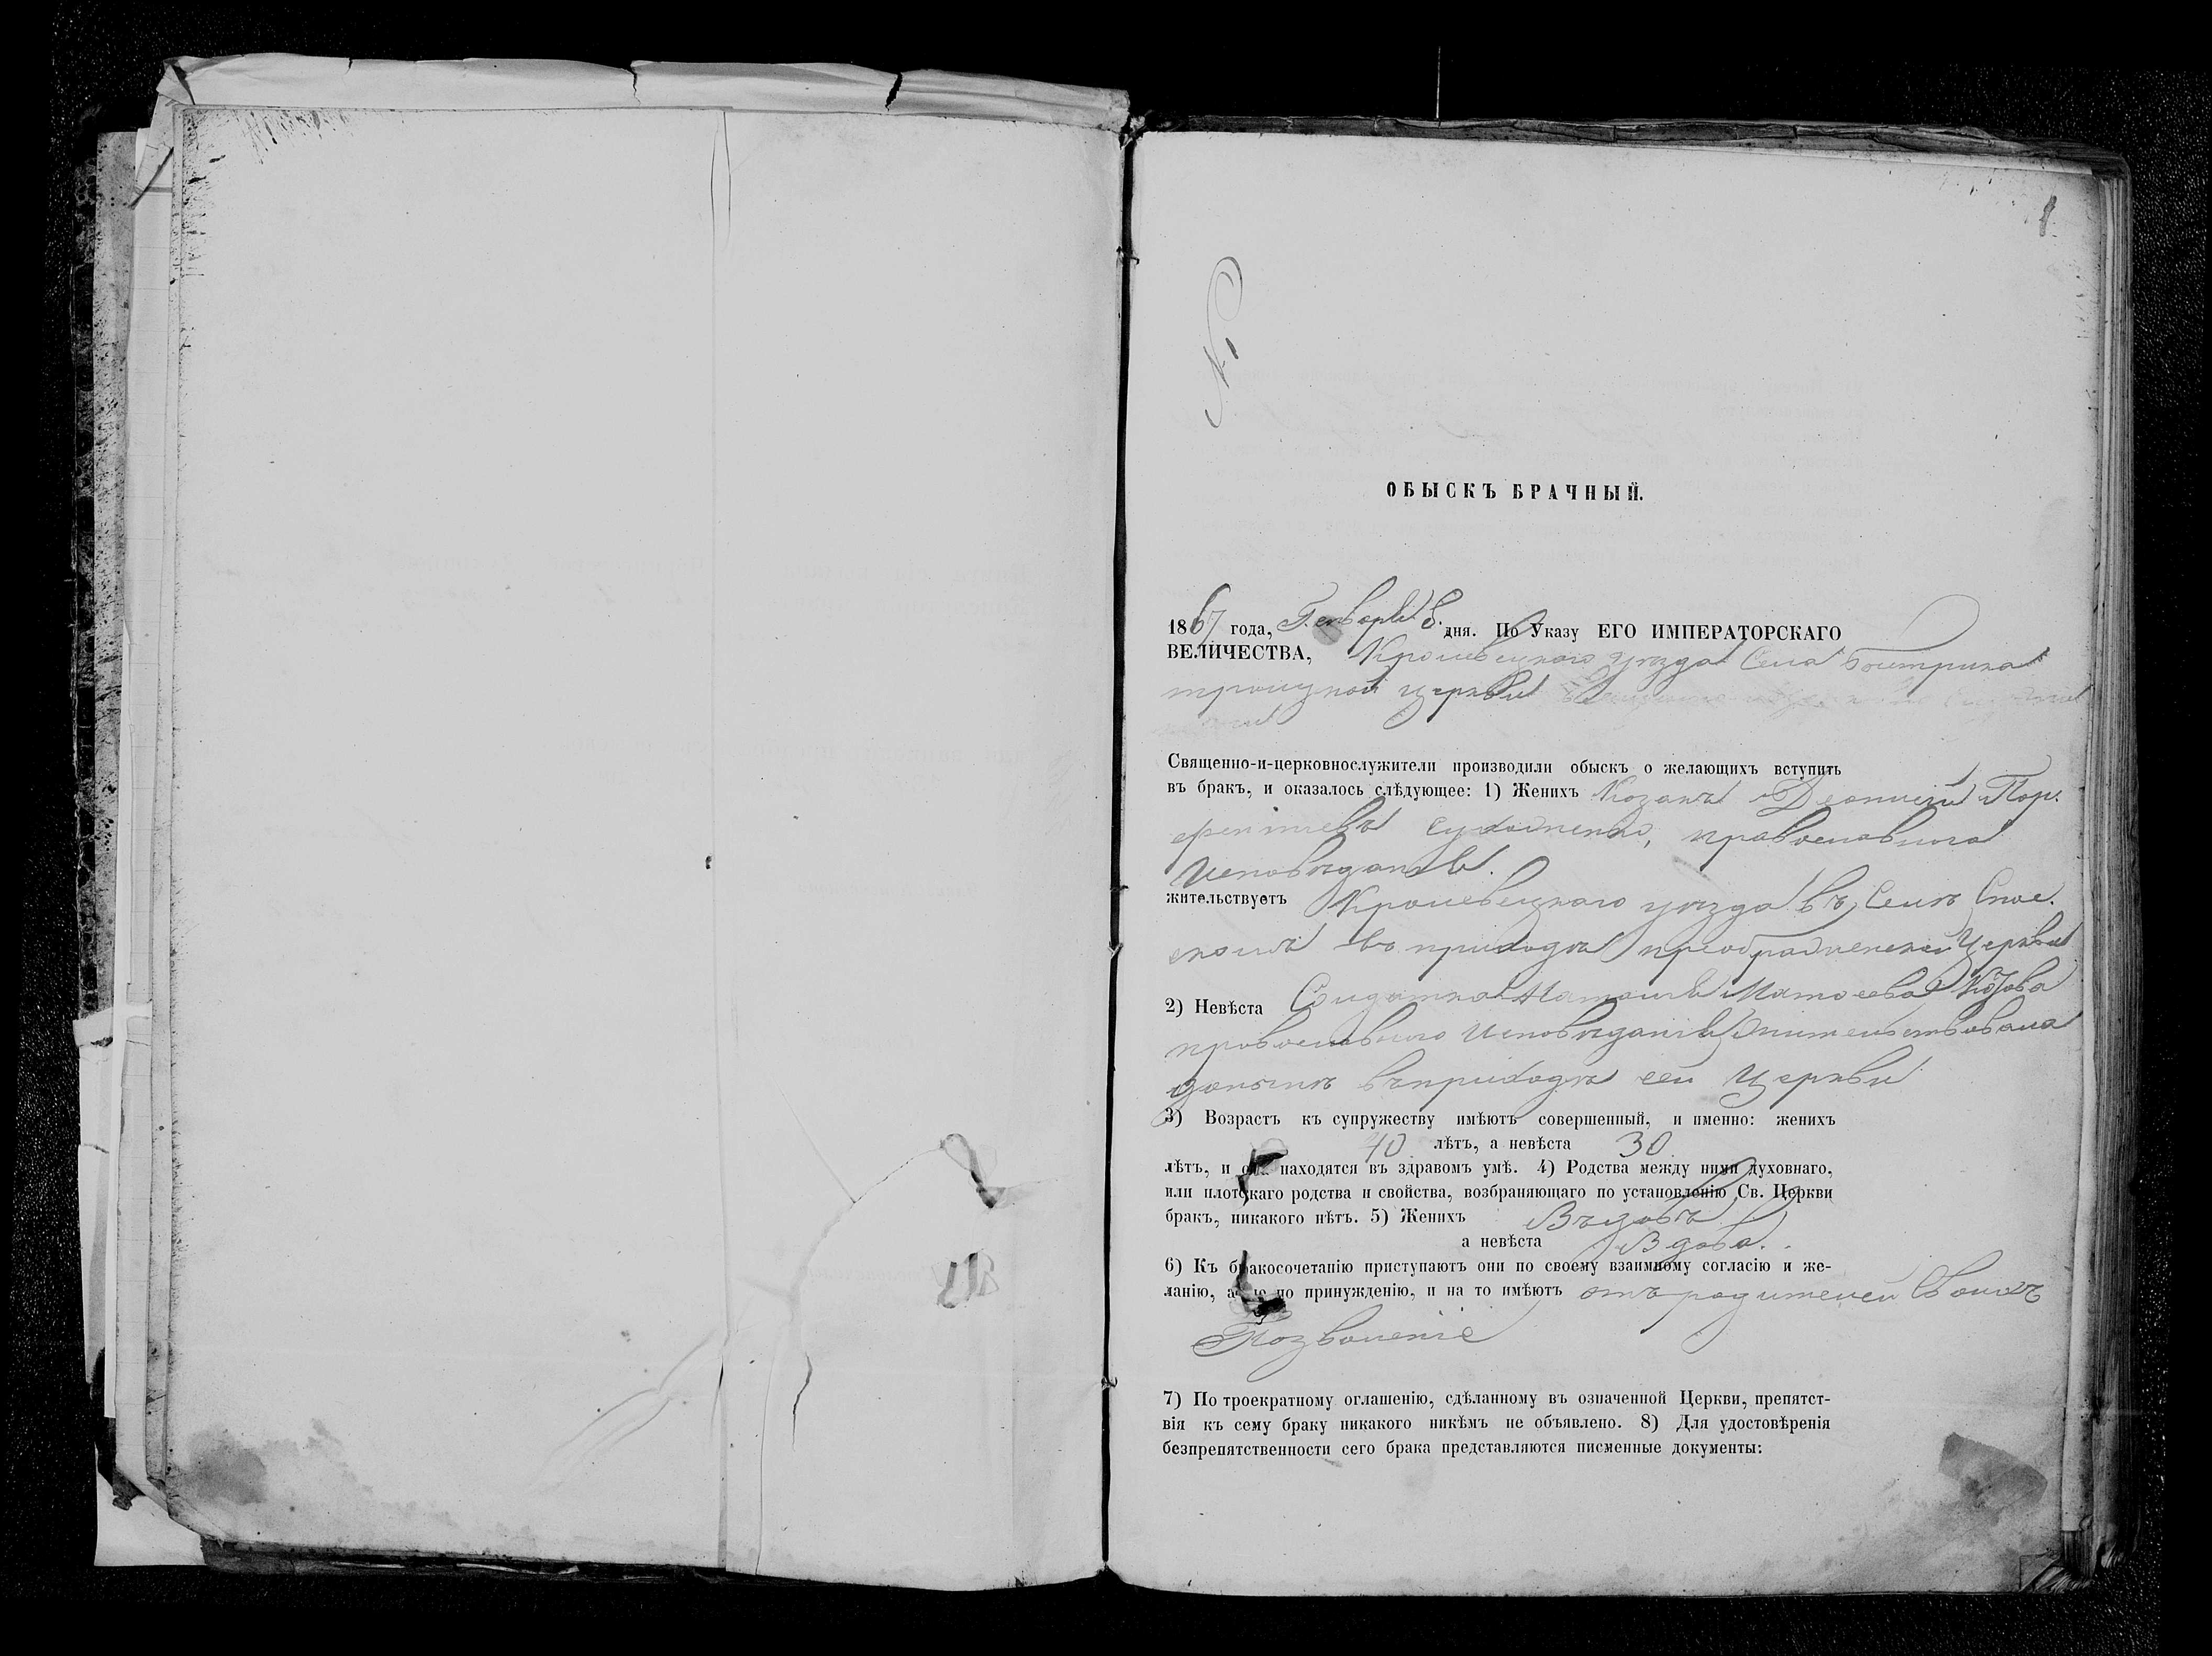 1
№
ОБЫСКЪ БРАЧНЫЙ.
1867 года, Генваря 8. дня. По Указу ЕГО ИМПЕРАТОРСКАГО
ВЕЛИЧЕСТВА, Кролевецкаго уѣзда Села
троицкой церкви
Священно-и-церковнослужители производили обыскъ о желающихъ вступить
въ бракъ, и оказалось слѣдующее: 1) Женихъ Козакъ
православнаго
Исповѣданія.
жительствуетъ Кролевецкаго уѣзда въ Селѣ Спас.
скомъ въ приходѣ преображенской Церкви
2) Невѣста Солдатка
православнаго Исповѣданія жительствовала
донынѣ въ приходѣ сей Церкви
3) Возрастъ къ супружеству имѣютъ совершенный, и именно: женихъ
40 лѣтъ, а невѣста 30
лѣтъ, и находятся въ здравомъ умѣ. 4) Родства между ними духовнаго,
или плотскаго родства и свойства, возбраняющаго по установленію Св. Церкви
бракъ, никакого нѣтъ. 5) Женихъ
а невѣста Вдова.
6) Къ бракосочетанію приступаютъ они по своему взаимному согласію и же-
ланію, а не по принужденію, и на то имѣютъ отъ родителей Своихъ
Позволеніе
7) По троекратному оглашенію, сдѣланному въ означенной Церкви, препятст-
вія къ сему браку никакого никѣмъ не объявлено. 8) Для удостовѣренія
безпрепятственности сего брака представляются писменные документы: